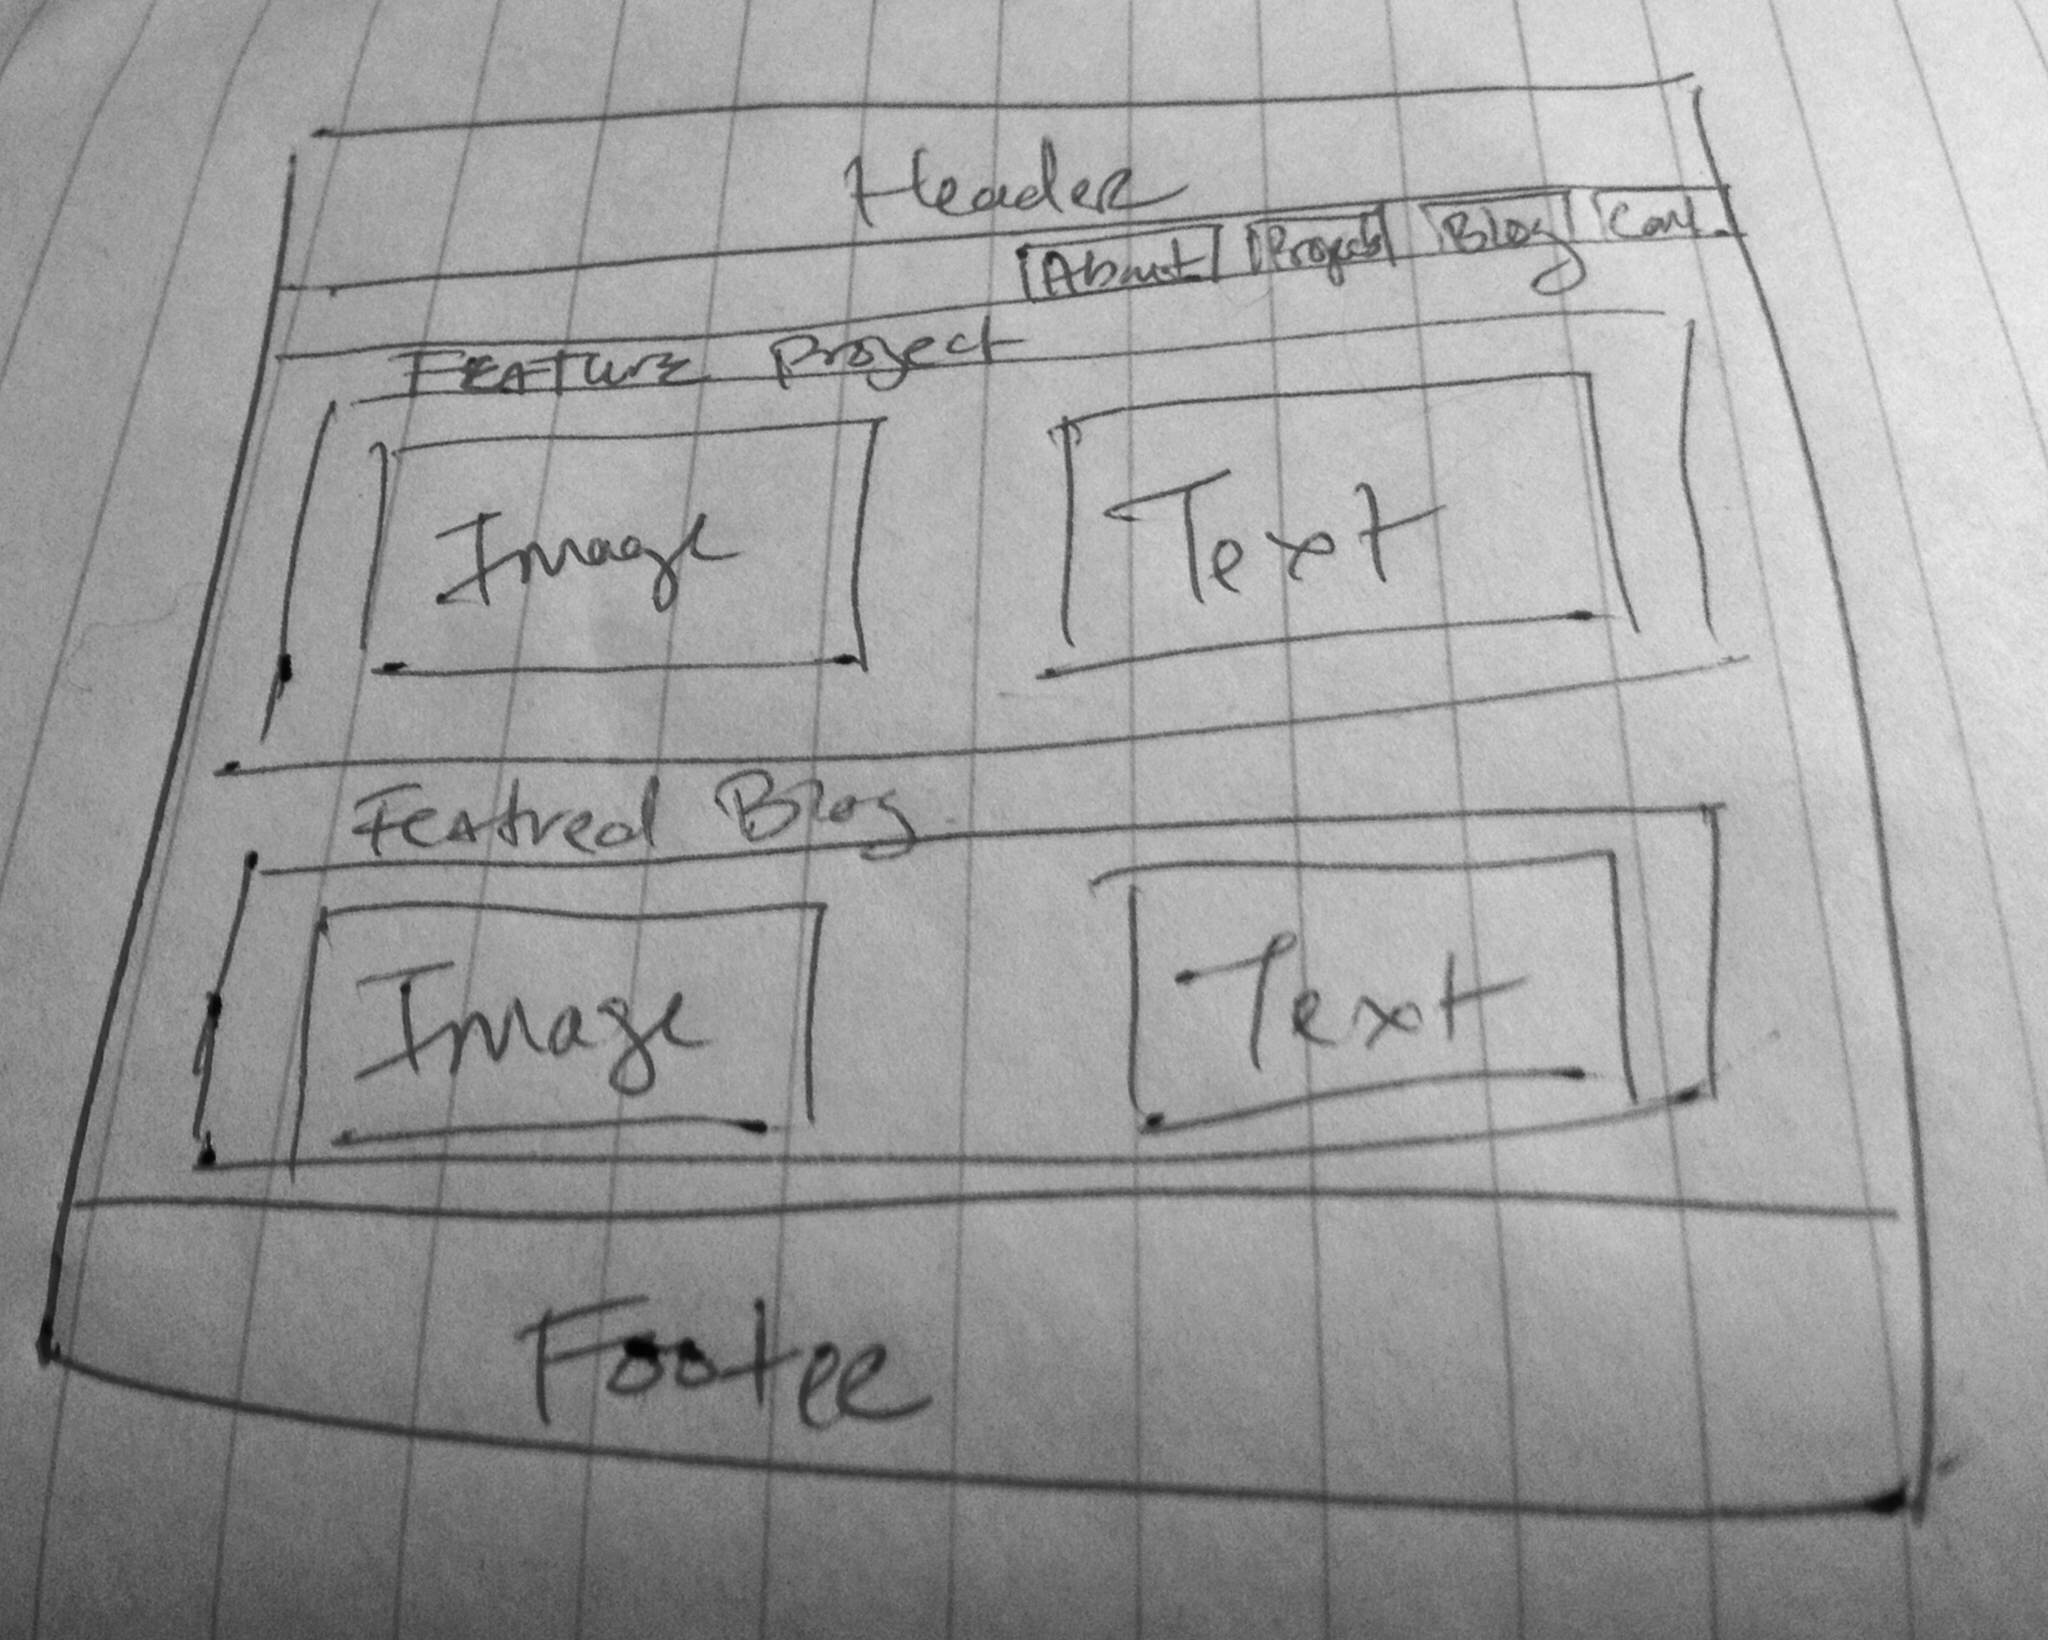 Header
About Projects Blog Con.
FEATURE Project
Image Text
Featured Blog
Image Text
Footer